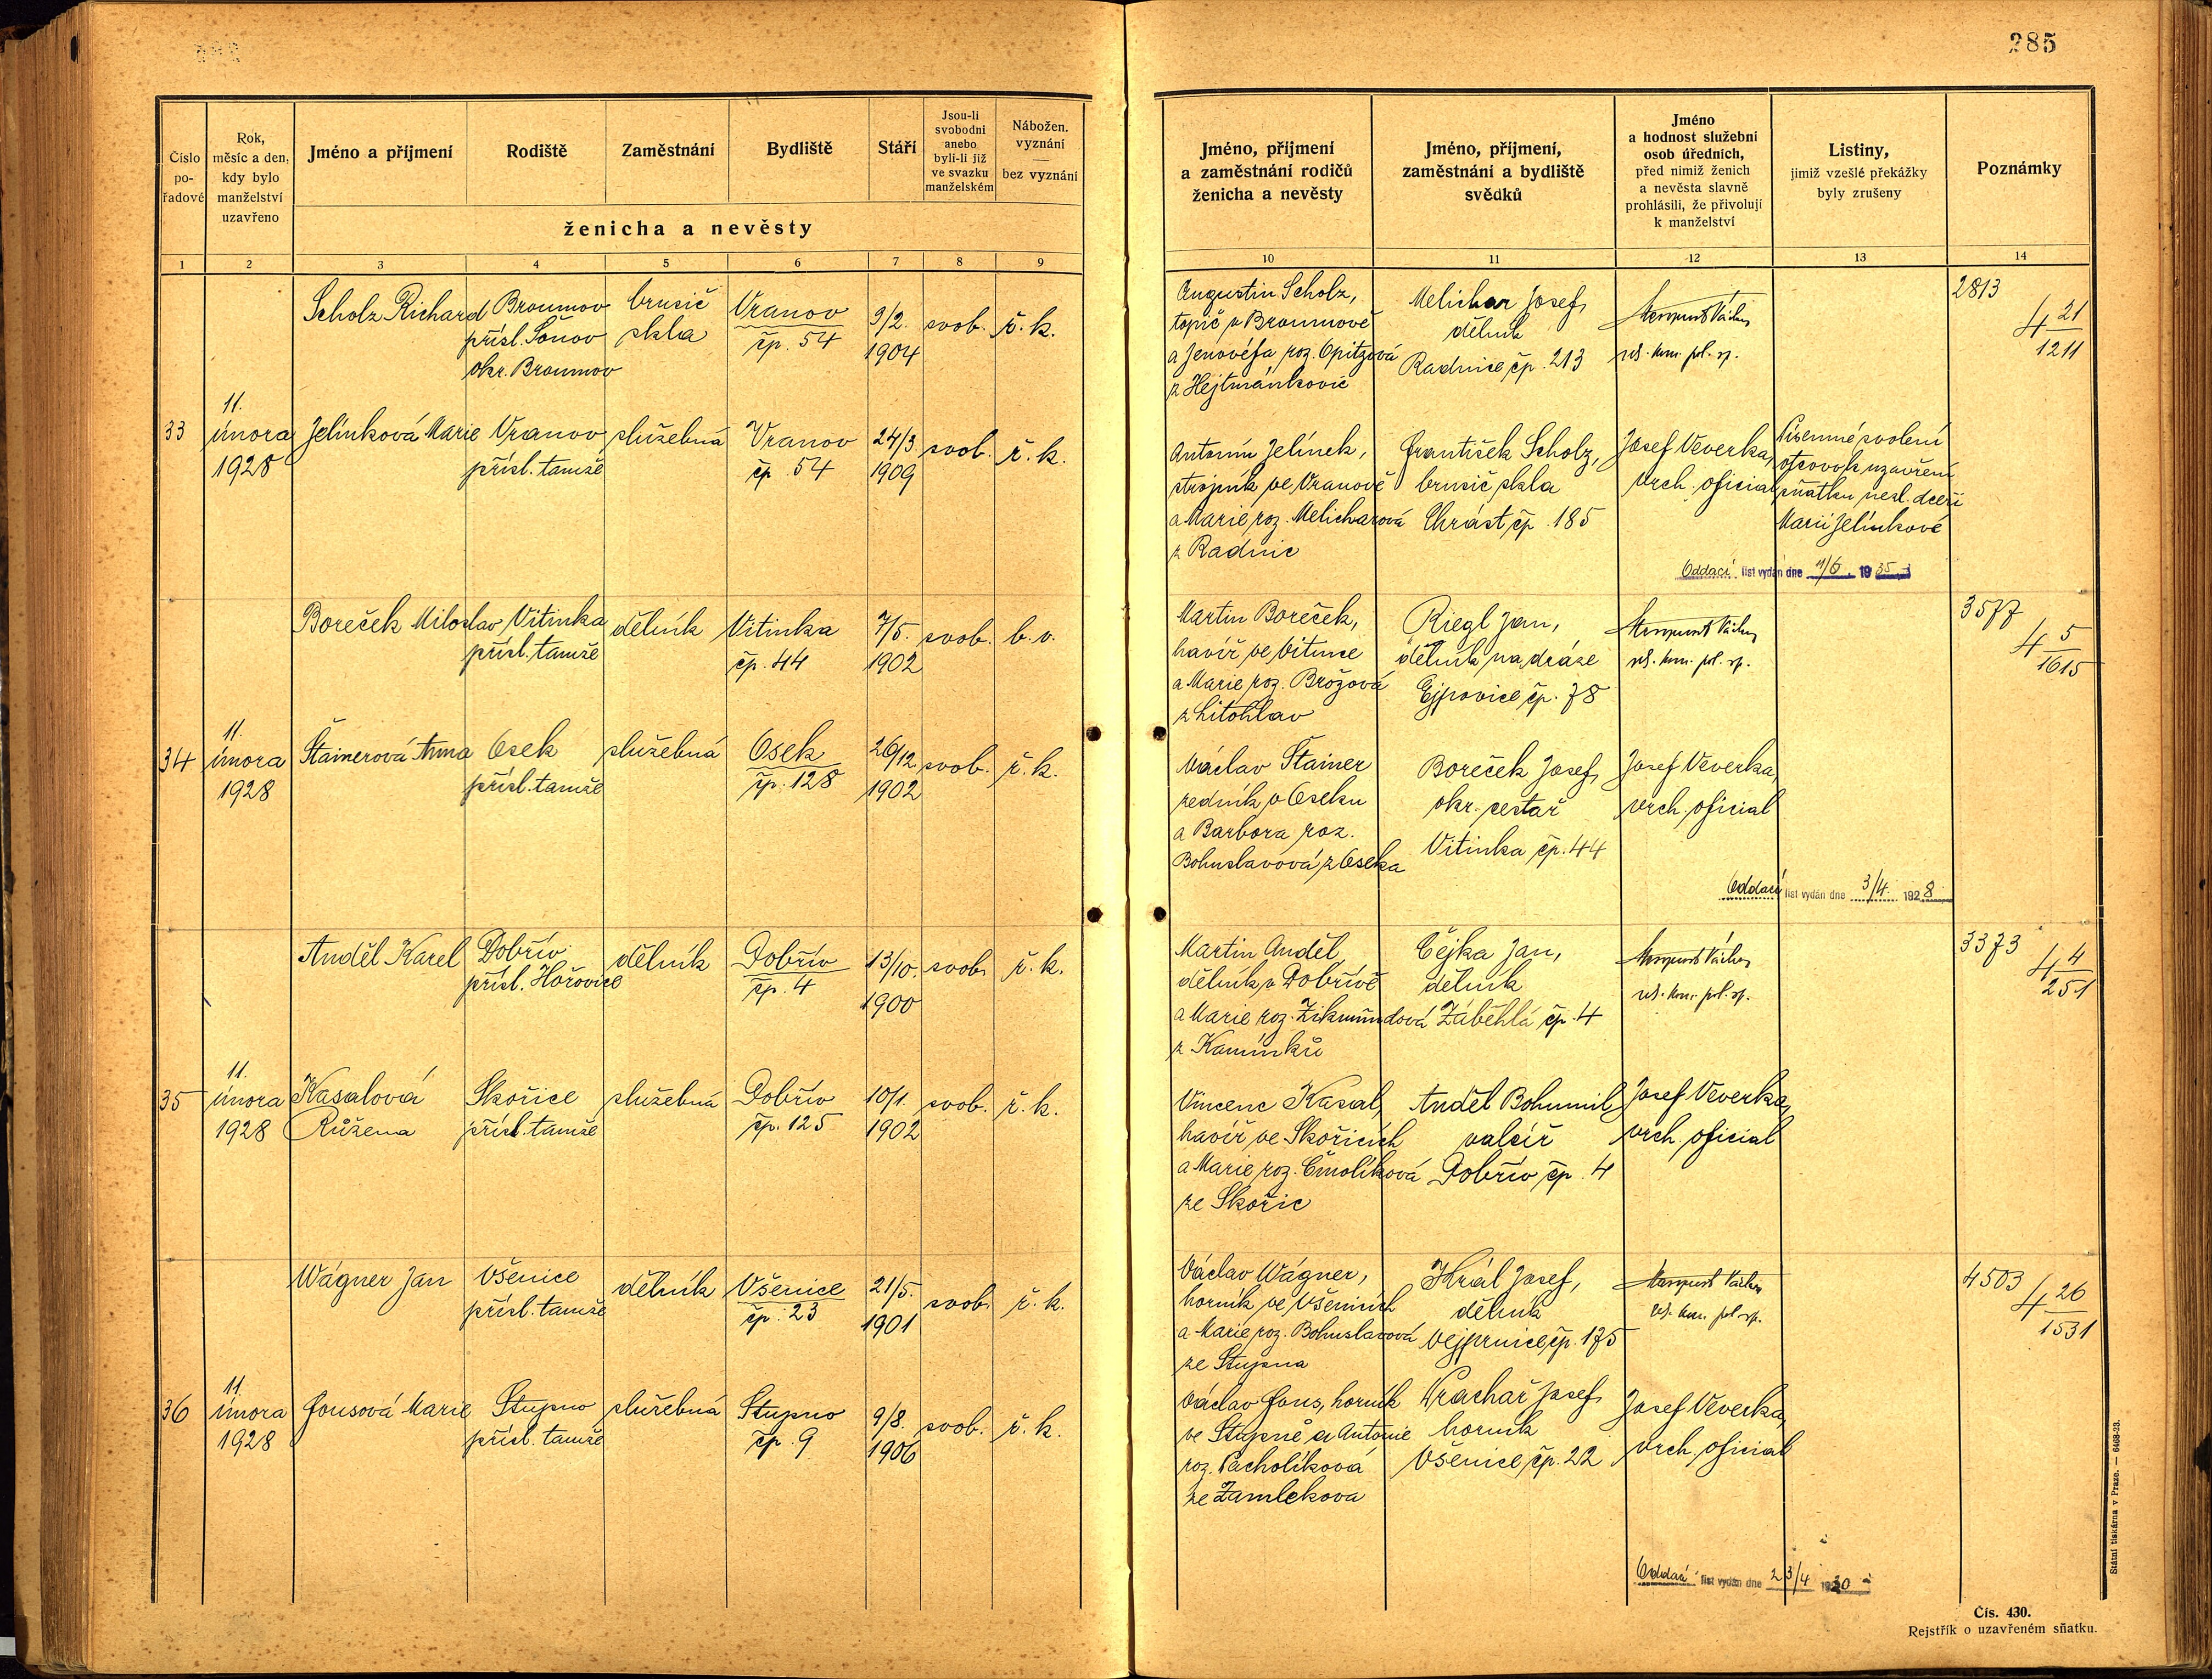 285
Číslo
po-
řadové
Rok,
měsíc a den,
kdy bylo
manželství
uzavřeno
Jméno a příjmení
Rodiště
Zaměstnání
Bydliště
Stáří
Jsou-li
svobodni
anebo
byli-li již
ve svazku
manželském
Nábožen.
vyznání
—
bez vyznání
ženicha a nevěsty
1 2 3 4 5 6 7 8 9
Scholz Richard
Broumov
přísl. Šonov
okr. Broumov
brusič
skla
Vranov
čp. 54
9/2.
1904
svob.
ř. k.
33
11.
února
1928
Jelínková Marie
Vranov
přísl. tamže
služebná
Vranov
čp. 54
24/3.
1909
svob.
ř. k.
Boreček Miloslav
Vitinka
přísl. tamže
dělník
Vitinka
čp. 44
7/5.
1902
svob.
b. v.
34
11.
února
1928
Štainerová Anna
Osek
přísl. tamže
služebná
Osek
čp. 128
26/12.
1902
svob.
ř. k.
Anděl Karel
Dobřív
přísl. Hořovice
dělník
Dobřív
čp. 4
13/10.
1900
svob.
ř. k.
35
11.
února
1928
Kasalová
Růžena
Skořice
přísl. tamže
služebná
Dobřív
čp. 125
10/1.
1902
svob.
ř. k.
Wágner Jan
Všenice
přísl. tamže
dělník
Všenice
čp. 23
21/5.
1901
svob.
ř. k.
36
11.
února
1928
Fousová Marie
Stupno
přísl. tamže
služebná
Stupno
čp. 9
9/8.
1906
svob.
ř. k.
Jméno, příjmení
a zaměstnání rodičů
ženicha a nevěsty
Jméno, příjmení,
zaměstnání a bydliště
svědků
Jméno
a hodnost služební
osob úředních,
před nimiž ženich
a nevěsta slavně
prohlásili, že přivolují
k manželství
Listiny,
jimiž vzešlé překážky
byly zrušeny
Poznámky
10 11 12 13 14
Augustin Scholz,
topič v Broumově
a Jenovéfa roz. Opitzová
z Hejtmánkovic
Melichar Josef,
dělník
Radnice čp. 213
pol. sp.
2813
4 21
1211
Antonín Jelínek,
strojník ve Vranově
a Marie roz. Melicharová
z Radnic
František Scholz,
brusič skla
Chrást čp. 185
Josef Veverka,
vrch. oficial
Písemné svolení
otcovo k uzavření
sňatku nezl. dceři
Marii Jelínkové
Oddací list vydán dne 11/6. 1935
Martin Boreček,
havíř ve Vitince
a Marie roz. Brožová
z Litohlav
Riegl Jan,
dělník na dráze
Ejpovice čp. 78
pol. sp.
3577
4 5
1615
Václav Štainer
zedník v Oseku
a Barbora roz.
Bohuslavová z Oseka
Boreček Josef,
okr. cestař
Vitinka čp. 44
Josef Veverka,
vrch. oficial
Oddací list vydán dne 3/4. 1928
Martin Anděl,
dělník v Dobřívě
a Marie roz. Zikmundová
z Kamínků
Čejka Jan,
dělník
Záběhlá čp. 4
pol. sp.
3373
4 4
251
Vincenc Kasal,
havíř ve Skořicích
a Marie roz. Čmolíková
ze Skořic
Anděl Bohumil,
valcíř
Dobřív čp. 4
Josef Veverka,
vrch. oficial
Václav Wágner,
horník ve Všenicích
a Marie roz. Bohuslavová
ze Stupna
Král Josef,
dělník
Vejprnice čp. 175
pol. sp.
4503
4 26
1531
Václav Fous, horník
ve Stupně a Antonie
roz. Pacholíková
ze Zamlekova
Prachař Josef,
horník
Všenice čp. 22
Josef Veverka,
vrch. oficial
Oddací list vydán dne 23/4 1930
Státní tiskárna v Praze. — 6468-23.
Čís. 430.
Rejstřík o uzavřeném sňatku.